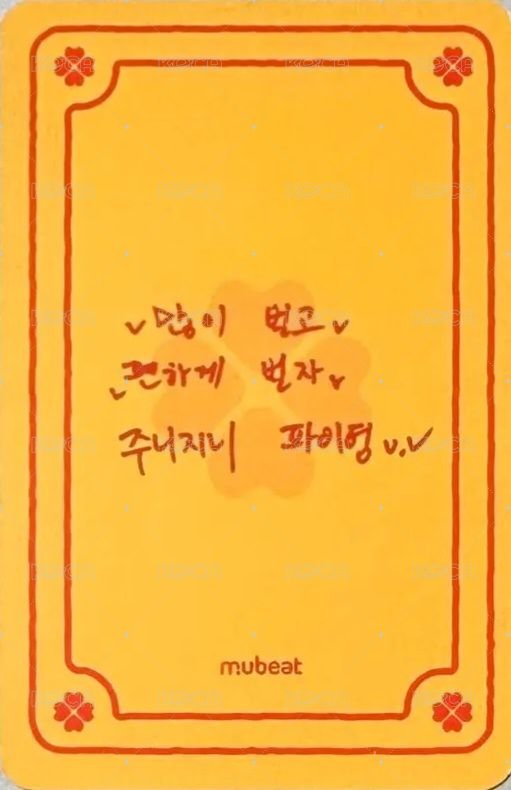 많이 벌고
편하게 벌자
주니지니 파이팅 v.v
mubeat